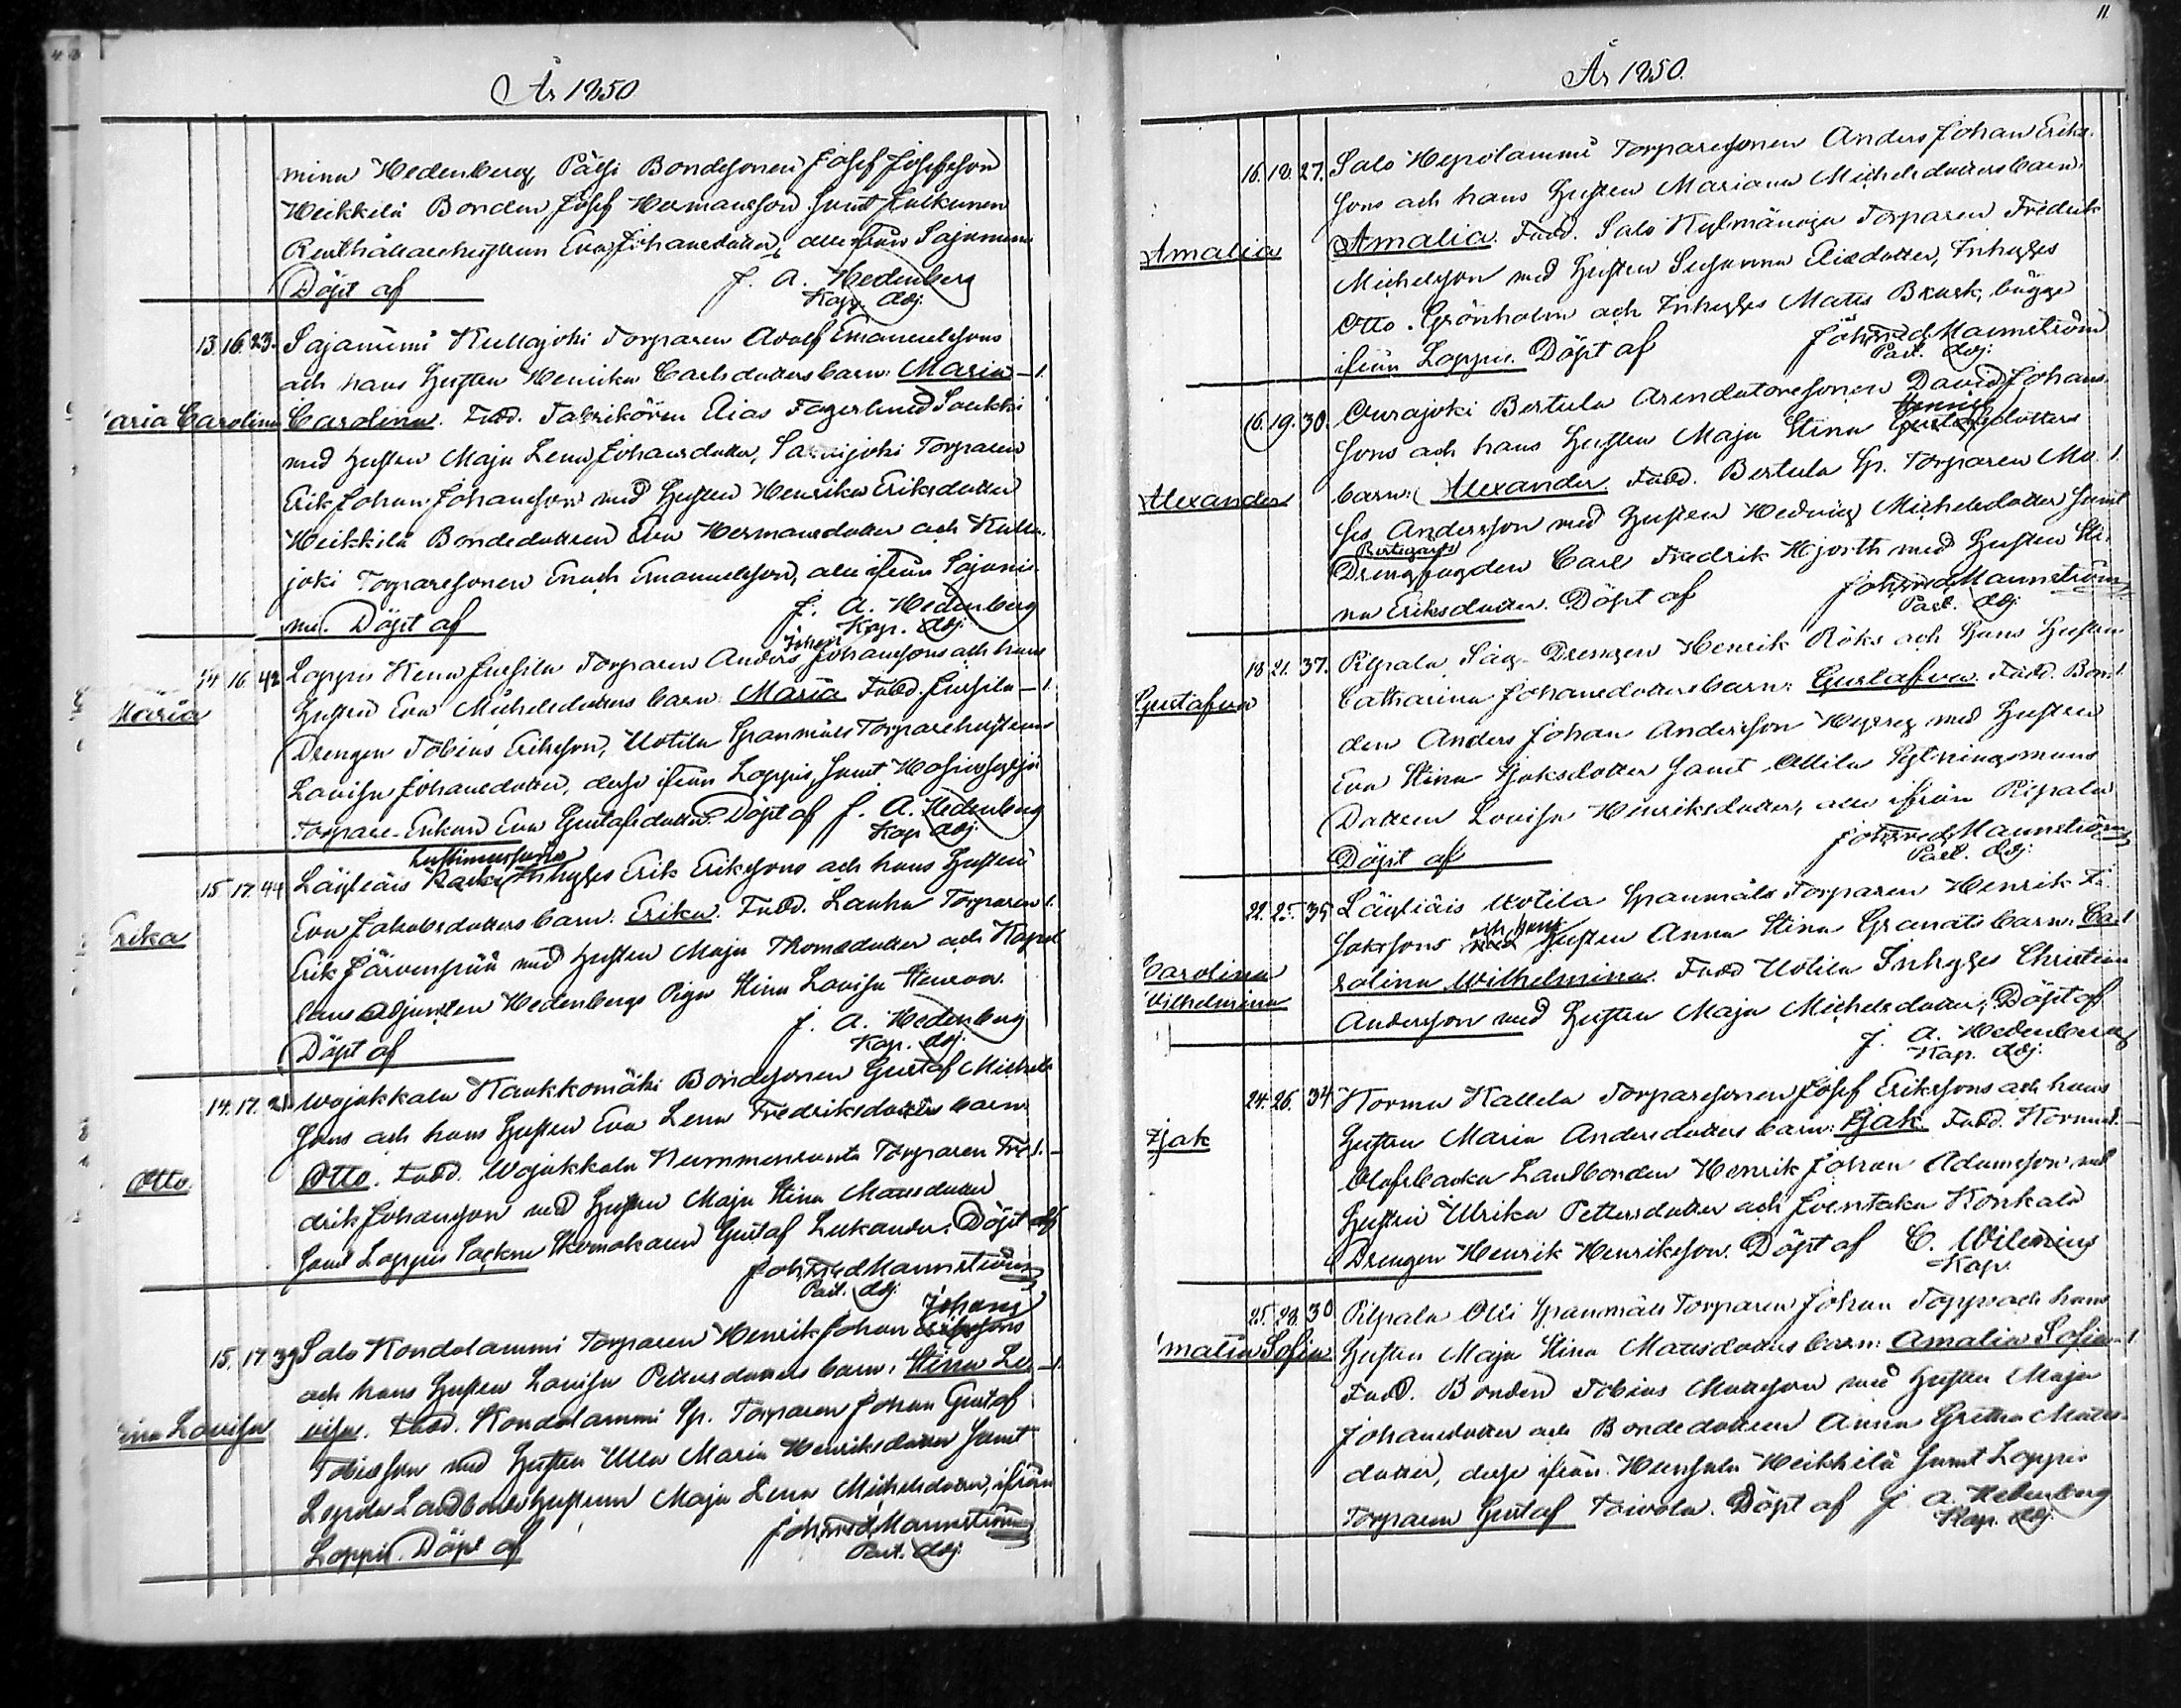 År 1850
mina Hedenberg, Pälsi Bondesonen Josef Josefsson
Heikkilä Bonden Josef Hermansson samt Julkunen
Rusthållarehustrun Eva Johansdotter, alla från Sajaniemi
Döpt af J. A. Hedenberg
Kap. Adj.
13. 16. 23. Sajaniemi Kullajoki Torparen Adolf Emanuelssons
och hans Hustru Henrika Carlsdotters barn: Maria 1.
Maria Carolina Carolina. Fadd. Fabrikören Elias Fagerlund Saukki
med Hustru Maja Lena Johansdotter, Torparen
Erik Johan Johansson med Hustru Henrika Eriksdotter
Heikkilä Bondedottren Eva Hermansdotter och Kulla-
joki Torparesonen Enoch Emanuelsson, alla ifrån Sajanie-
mi. Döpt af J. A. Hedenberg
Kap. Adj.
Johan
14. 16. 42 Loppis Torparen Anders Johanssons och hans
Maria Hustru Eva Michelsdotters barn: Maria Fadd. 1.
Drengen Tobias Eriksson, Uotila Spanmåls Torparehustrun
Lovisa Johansdotter, desse ifrån Loppis, samt
Torpare-Enkan Eva Gustafsdotter. Döpt af J. A. Hedenberg
Kap. Adj.
15. 17. 44 Läyliäis Inhyses Erik Erikssons och hans Hustru
Erika Eva Jakobsdotters barn: Erika. Fadd. Lauha Torparen 1.
Erik Järvenpää med Hustru Maja Thomasdotter och Kapel-
lans Adjunkten Hedenbergs Piga Stina Lovisa Stenroos.
Döpt af J. A. Hedenberg
Kap. Adj.
14. 17. 21. Wojakkala Kaukkomäki Bondesonen Gustaf Michels-
sons och hans Hustru Eva Lena Fredriksdotters barn
Otto Otto. Fadd. Wojakkala Nummenranta Torparen Fre- 1.
drik Johansson med Hustru Maja Stina Matsdotter
samt Loppis Sockne Skomakaren Gustaf Lukander. Döpt af
Joh. Fred. Mannström
Past. Adj.
Johans
15. 17. 39 Salo Kondolammi Torparen Henrik Johan Erikssons
och hans Hustru Lovisa Pettersdotters barn: Stina Lo- 1.
Stina Lovisa visa. Fadd. Kondolammi Sp. Torparen Johan Gustaf
Tobiasson med Hustru Ulla Maria Henriksdotter samt
Lepola Landbondehustrun Maja Lena Michelsdotter, ifrån
Loppis. Döpt af Joh. Fred. Mannström
Past. Adj.
11.
År 1850.
16. 18. 27. Salo Hepolammi Torparesonen Anders Johan Eriks-
sons och hans Hustru Mariana Michelsdotters barn
Amalia Amalia. Fadd. Salo Torparen Fredrik
Michelsson med Hustru Susanna Eliedotter, Inhyses
Otto Grönholm och Inhyses Matts Brusk, bägge
ifrån Loppis. Döpt af Joh. Fred. Mannström
Past. Adj.
16. 19. 30. Ourajoki Bertula Arendatoresonen David Johans-
Henriks
sons och hans Hustru Maja Stina Gustafsdotters
Alexander barn: Alexander. Fadd. Bertula Sp. Torparen Mo- 1.
ses Andersson med Hustru Hedvig Michelsdotter samt
Drengfogden Carl Fredrik Hjorth med Hustru Sti-
na Eriksdotter. Döpt af Joh. Fred. Mannström
Past. Adj.
18. 21. 37. Pilpala Såg-Drengen Henrik Röks och hans Hustru
Gustafva Catharina Johansdotters barn: Gustafva. Fadd. Bon- 1.
den Anders Johan Andersson med Hustru
Eva Stina Isaksdotter samt Ollila Sytningsmans
Dottren Lovisa Henriksdotter, alla ifrån Pilpala
Döpt af Joh. Fred. Mannström
Past. Adj.
22. 25. 35 Läyliäis Uotila Spanmåls Torparen Henrik I-
saksons och hans Hustru Anna Stina Granats barn: Ca- 1.
Carolina Wilhelmina rolina Wilhelmina. Fadd. Uotila Inhyses Christian
Andersson med Hustru Maja Michelsdotter, Döpt af
J. A. Hedenberg
Kap. Adj.
24. 26. 34 Kormu Kallela Torparesonen Josef Erikssons och hans
Isak Hustru Maria Andersdotters barn: Isak. Fadd. Kormu 1.
Olofsbacka Landbonden Henrik Johan Adamsson med
Hustru Ulrika Pettersdotter och Joentaka Konkala
Drengen Henrik Henriksson. Döpt af C. Wilenius
Kap.
25. 28. 30 Pilpala Olli Spanmåls Torparen Johan Topps och hans
Amalia Sofia Hustru Maja Stina Matsdotters barn: Amalia Sofia 1.
Fadd. Bonden Tobias Mattsson med Hustru Maja
Johansdotter och Bondedottren Anna Gretha Mats-
dotter, desse ifrån Hunsala Heikkilä samt Loppis
Torparen Gustaf Toivola. Döpt af J. A. Hedenberg
Kap. Adj.